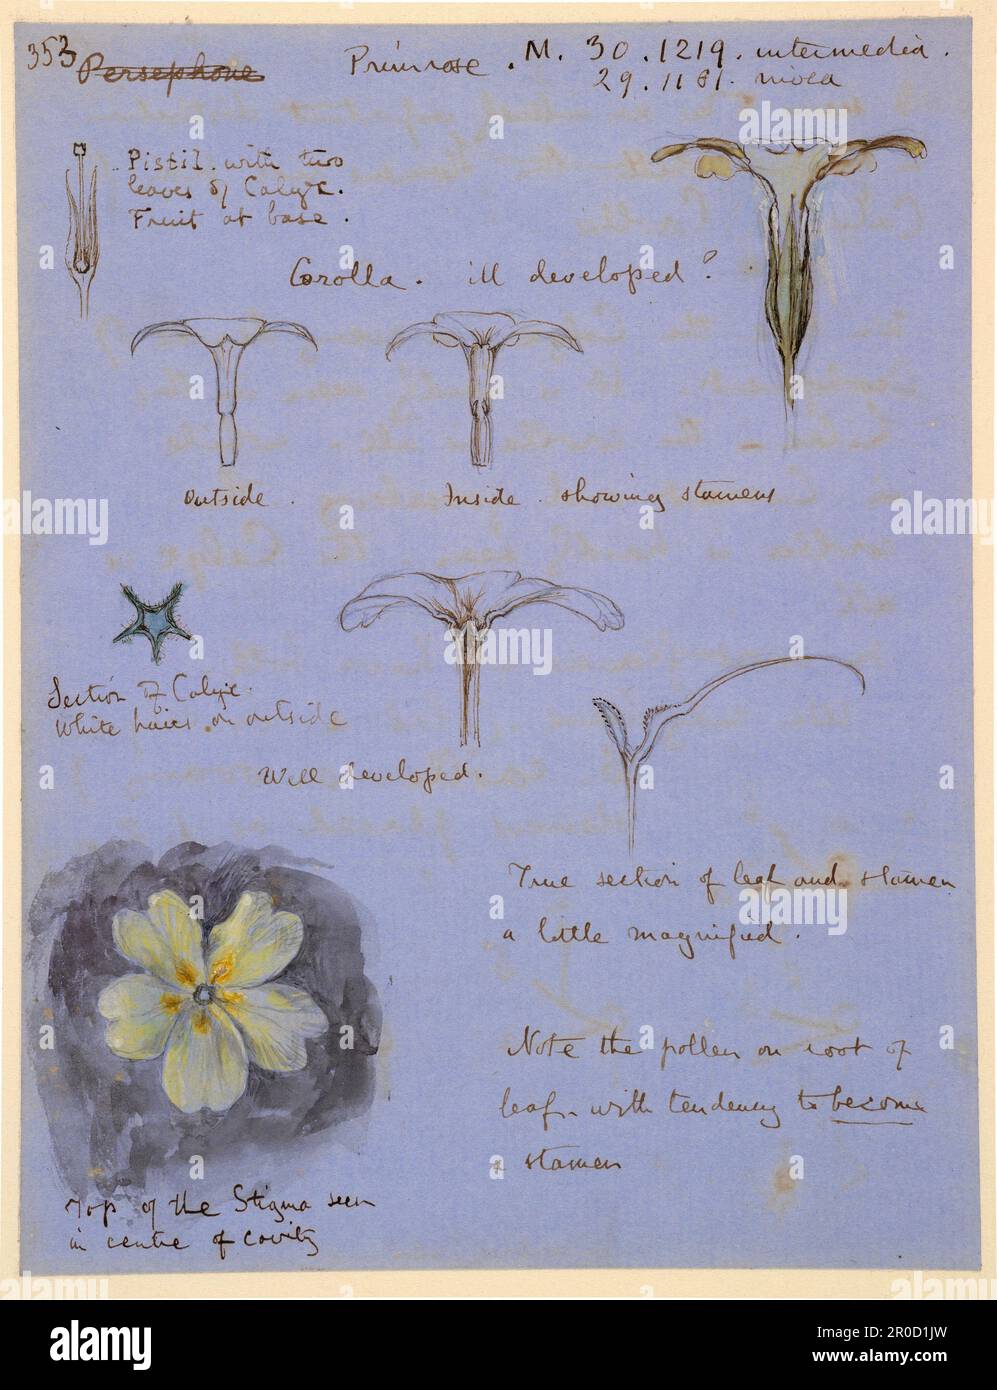 353 Persephone Primrose . M. 30 . 1219 . intermedia .
29 . 1181 . nivea
Pistil . with two
leaves of Calyx .
Fruit at base .
Corolla . ill developed ?
Outside .
Inside . showing stamens
Section of Calyx .
White hairs on outside
Well developed .
True section of leaf and stamen
a little magnified .
Note the pollen on root of
leaf . with tendency to become
stamen
Top of the Stigma seen
in centre of cavity
alamy
Image ID: 2R0D1JW
www.alamy.com